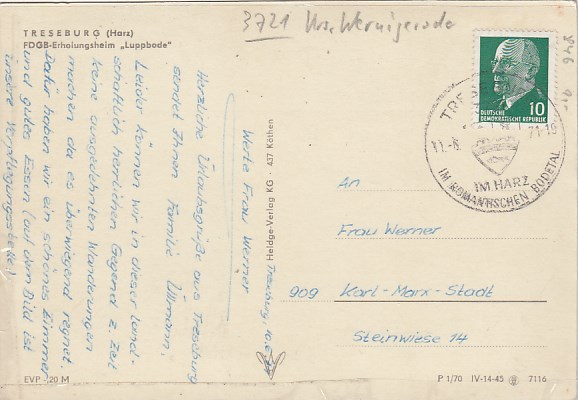 3721 Krs. Wernigerode
TRESEBURG (Harz)
FDGB-Erholungsheim „Luppbode"
Treseburg, 10.6.
Werte Frau Werner
Herzliche Urlaubsgrüße aus Treseburg
sendet Ihnen Familie Ullmann.
Leider können wir in dieser land-
schaftlich herrlichen Gegend z. Zeit
keine ausgedehnten Wanderungen
machen da es überwiegend regnet.
Dafür haben wir ein schönes Zimmer
und gutes Essen (auf dem Bild ist
unsere Verpflegungsstelle)
Heldge-Verlag KG · 437 Köthen
10
DEUTSCHE
DEMOKRATISCHE REPUBLIK
TRESEBURG
11.-6.
71-18
IM HARZ
IM ROMANTISCHEN BODETAL
An
Frau Werner
909 Karl-Marx-Stadt
Steinwiese 14
EVP -,20 M
P 1/70 IV-14-45 7116